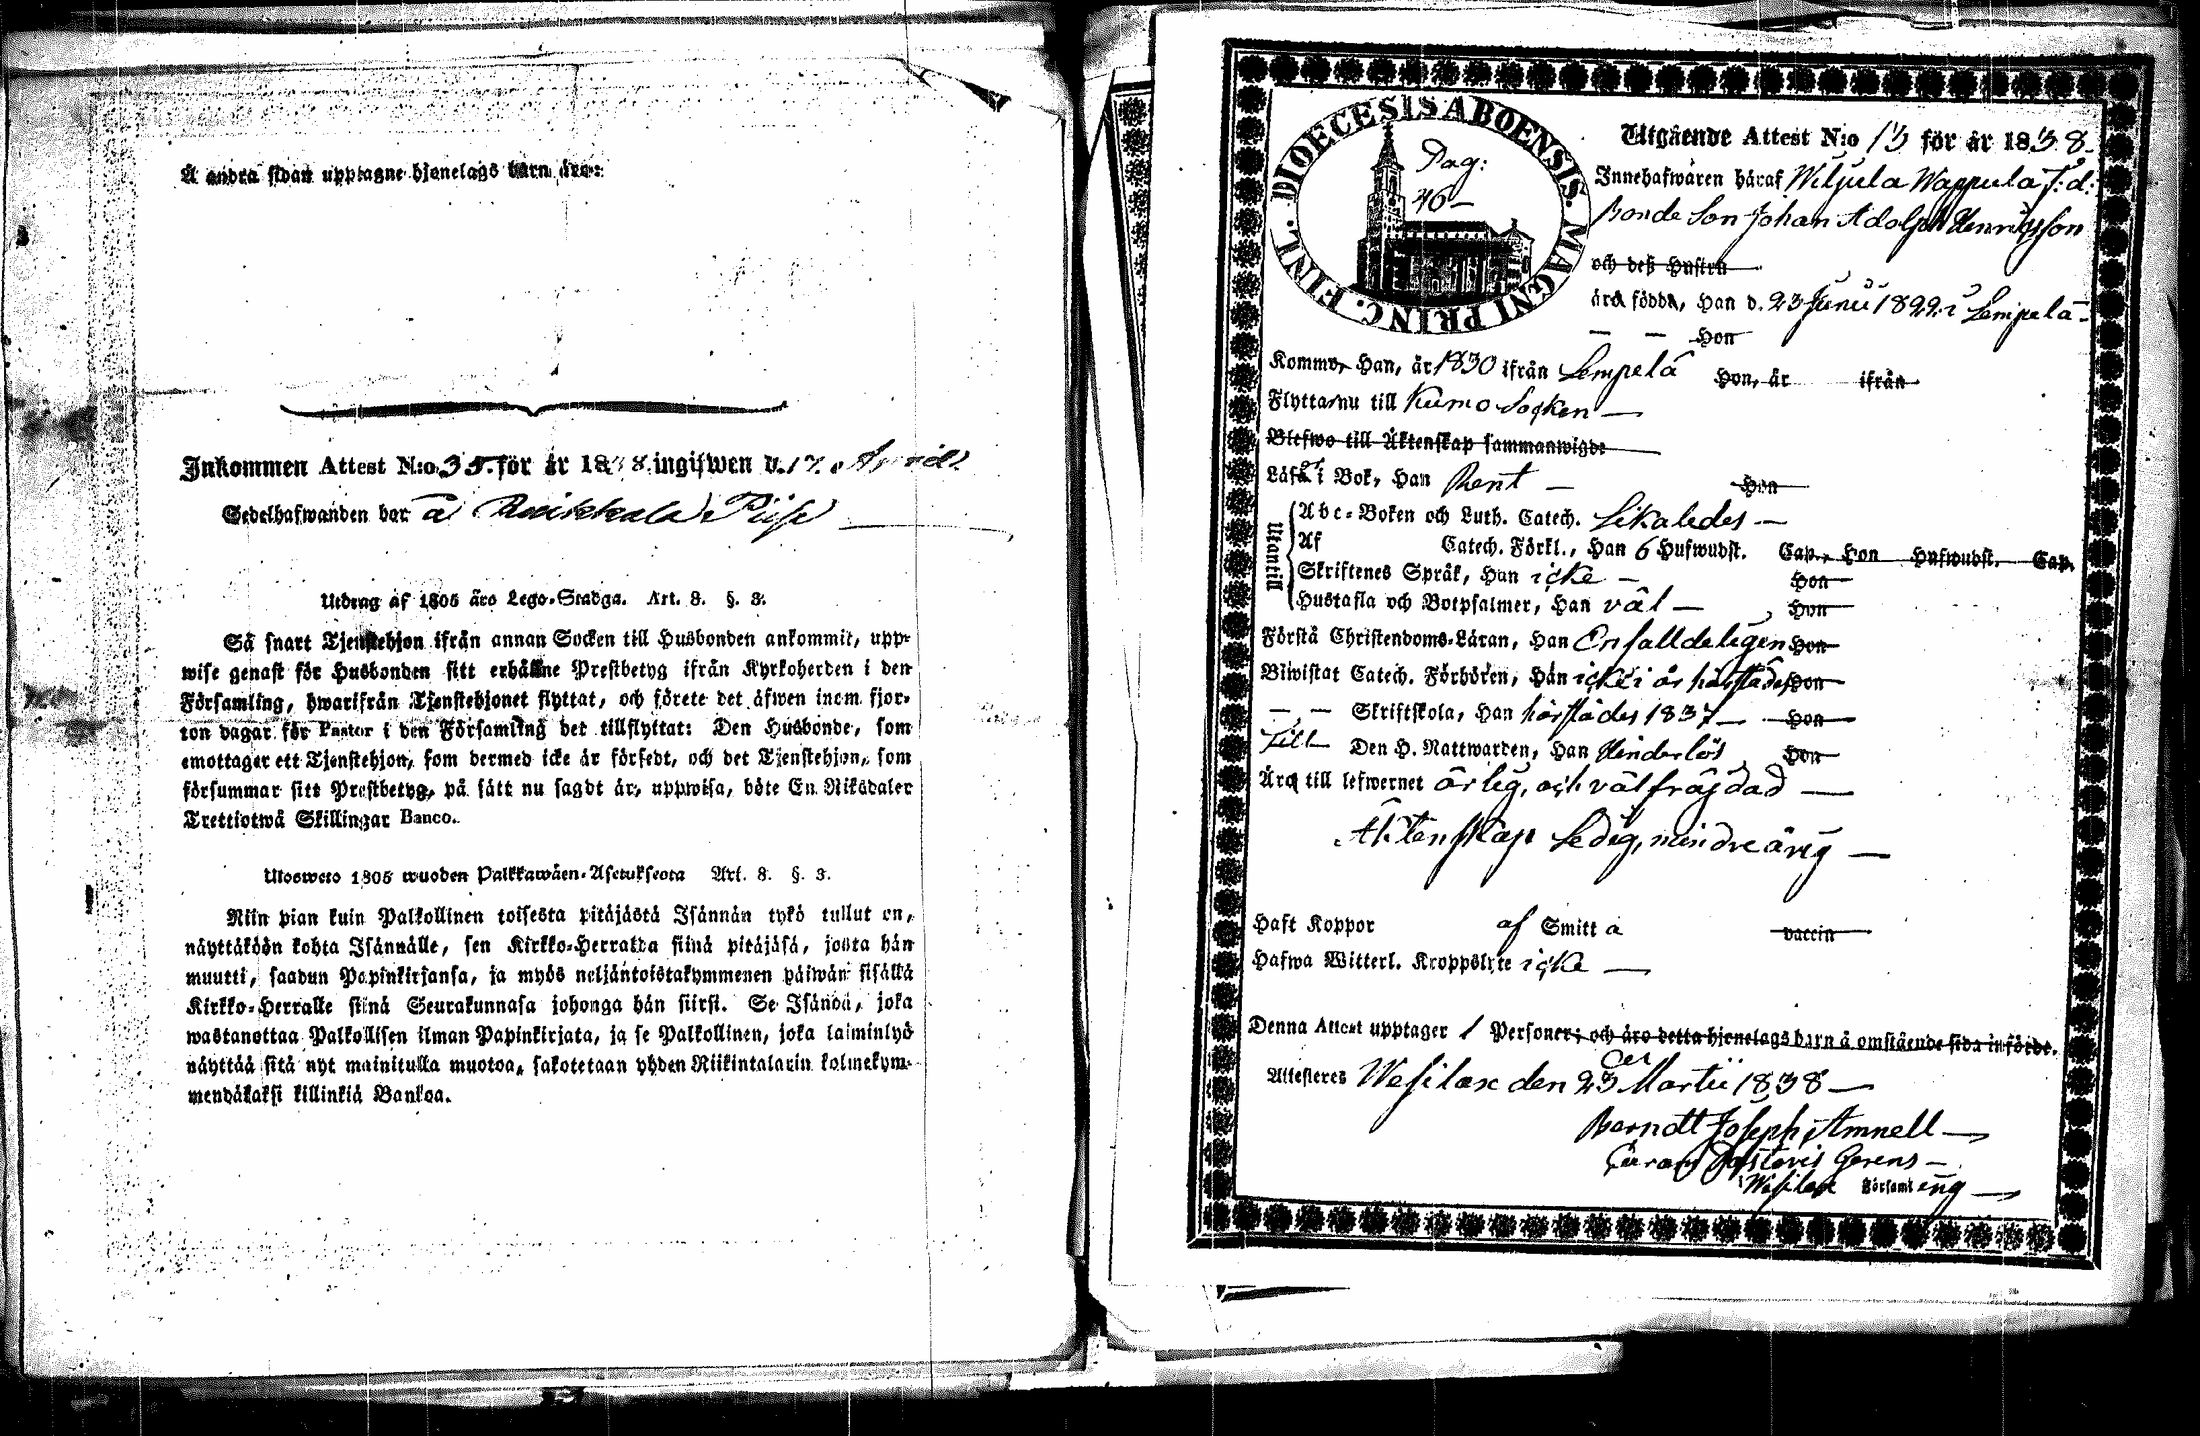 Å andra sidan upptagne hjonelags barn äro:
Inkommen Attest N:o 35. för år 1838. ingifwen d. 17. April.
Sedelhafwanden bor å Piise
Utdrag af 1805 års Lego-Stadga. Art. 8. §. 3.
Så snart Tjenstehjon ifrån annan Socken till Husbonden ankommit, upp-
wise genast för Husbonden sitt erhållne Prestbetyg ifrån Kyrkoherden i den
Församling, hwarifrån Tjenstehjonet flyttat, och förete det äfwen inom fjor-
ton dagar för Pastor i den Församling det tillflyttat: Den Husbonde, som
emottager ett Tjenstehjon, som dermed icke är försedt, och det Tjenstehjon, som
försummar sitt Prestbetyg, på sätt nu sagdt är, uppwisa, böte En Riksdaler
Trettiotwå Skillingar Banco.
Utosweto 1805 wuoden Palkkawäen-Asetuksesta Art. 8. §. 3.
Niin pian kuin Palkollinen toisesta pitäjästä Isännän tykö tullut on,
näyttäköön kohta Isännälle, sen Kirkko-Herralda siinä pitäjäsä, josta hän
muutti, saadun Papinkirjansa, ja myös neljäntoistakymmenen päiwän sisällä
Kirkko-Herralle siinä Seurakunnasa johonga hän siirsi. Se Isändä, joka
wastanottaa Palkollisen ilman Papinkirjata, ja se Palkollinen, joka laiminlyö
näyttää sitä nyt mainitulla muotoa, sakotetaan yhden Riikintalarin kolmekym-
mendäkaksi killinkiä Bankoa.
DIOECESIS ABOENSIS. MAGNI PRINC. FINL.
Pag:
46-
Utgående Attest N:o 13 för år 1838.
Innehafwaren häraf Wiljula Wappula f:d:
Bonde Son Johan Adolph Henricsson
och deß Hustru
ära födda, Han d. 23 Junii 1822 i Lempelä-
— — Hon
Kommo, Han, år 1830 ifrån Lempelä Hon, år ifrån
Flytta nu till Kumo Socken —
Blefwo till Äktenskap sammanwigde
Läsa i Bok, Han Rent — Hon
Utantill
Abc-Boken och Luth. Catech. Likaledes —
Af Catech. Förkl., Han 6 Hufwudst. Cap., Hon Hufwudst. Cap.
Skriftenes Språk, Han icke — Hon
Hustafla och Botpsalmer, Han väl — Hon
Förstå Christendoms-Läran, Han Enfalldeligen Hon
Biwistat Catech. Förhören, Han icke i år härstädes Hon
— — Skriftskola, Han härstädes 1837 — Hon
Till Den H. Nattwarden, Han Hinderlös Hon
Äro till lefwernet ärlig, och välfräjdad —
Äktenskap Ledig, minderårig —
Haft Koppor af Smitta vaccin
Hafwa Witterl. Kroppslyte icke —
Denna Attest upptager 1 Personer; och äro detta hjonelags barn å omstående sida införde.
Attesteres Wesilax den 23 Martii 1838 —
Berndt Joseph Amnell —
Curam Pastoris Gerens —
i Wesilax Församling —